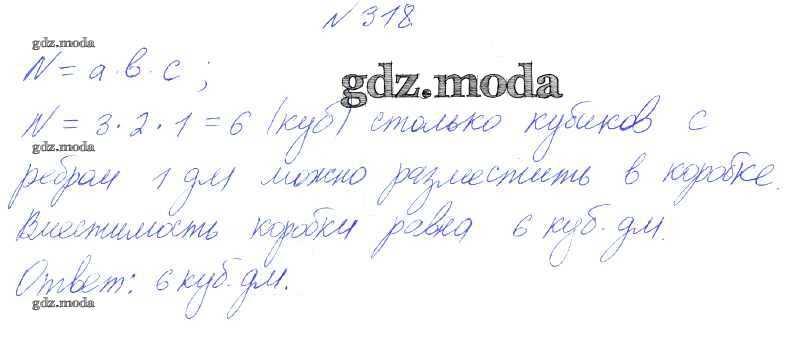 №318
gdz.moda
N = а · в · с ;
gdz.moda
N = 3 · 2 · 1 = 6 (куб) столько кубиков с
gdz.moda
ребром 1 дм можно разместить в коробке.
Вместимость коробки равна 6 куб. дм.
Ответ: 6 куб. дм.
gdz.moda